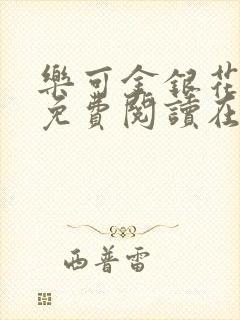 樂可金銀花
免費閱讀在
西普雷